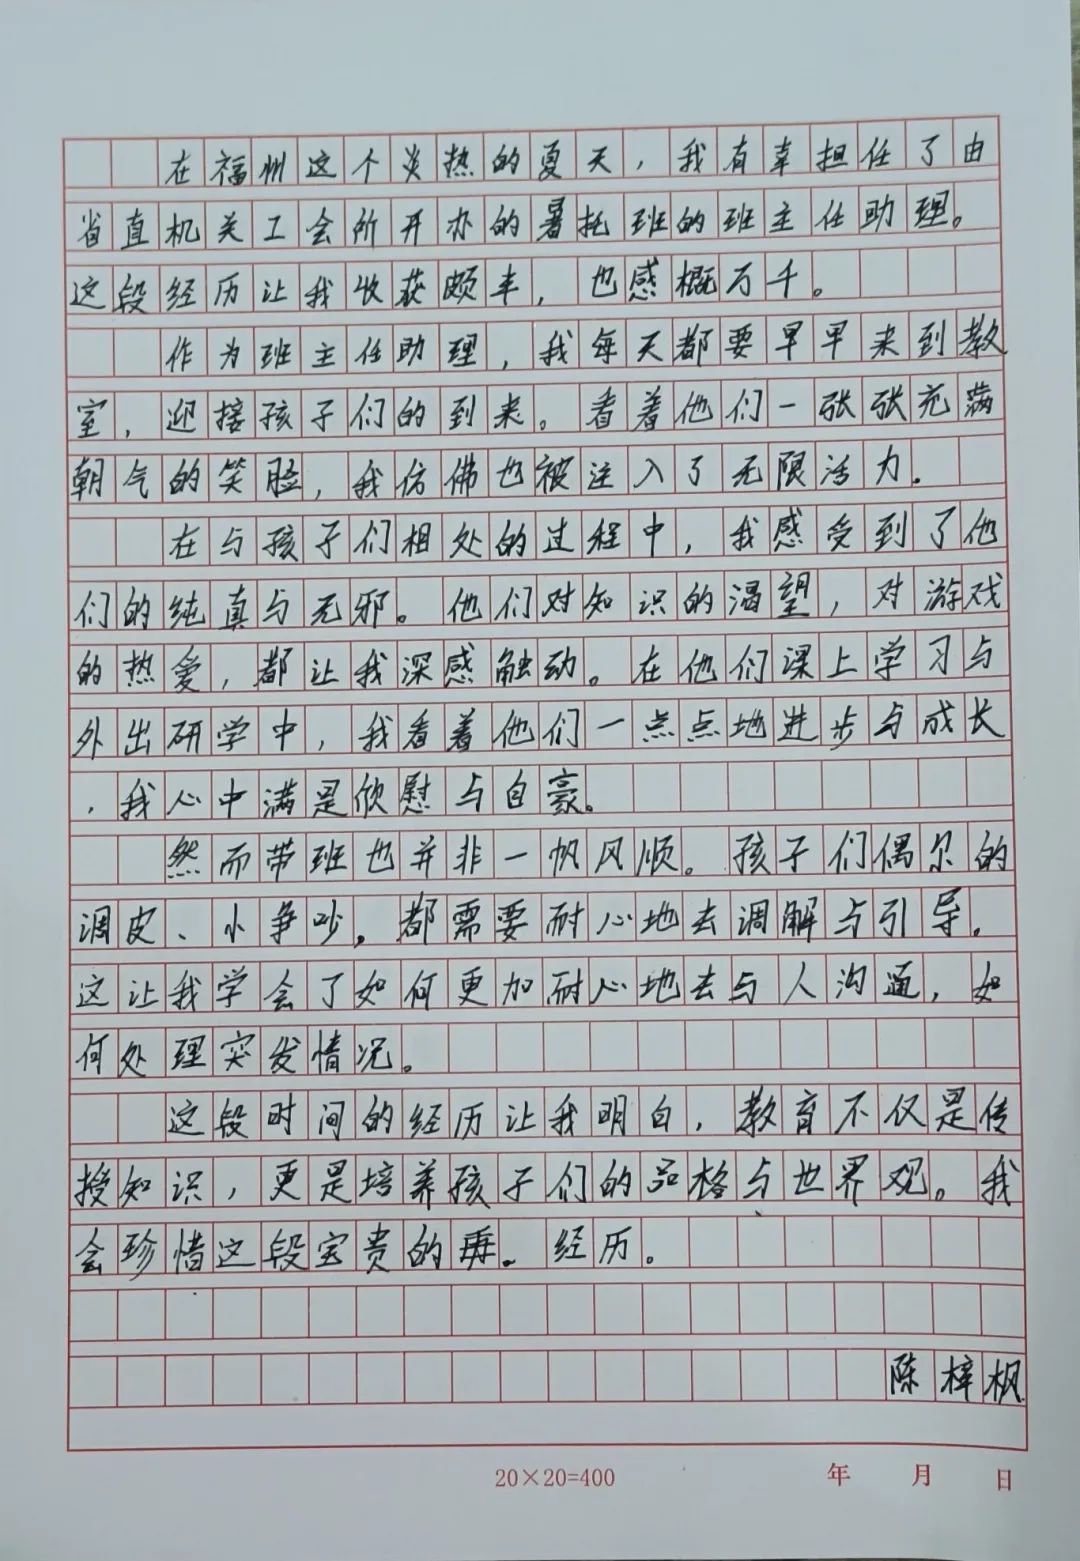 在福州这个炎热的夏天，我有幸担任了由
省直机关工会所开办的暑托班的班主任助理。
这段经历让我收获颇丰，也感概万千。
作为班主任助理，我每天都要早早来到教
室，迎接孩子们的到来。看着他们一张张充满
朝气的笑脸，我仿佛也被注入了无限活力。
在与孩子们相处的过程中，我感受到了他
们的纯真与无邪。他们对知识的渴望，对游戏
的热爱，都让我深感触动。在他们课上学习与
外出研学中，我看着他们一点点地进步与成长
，我心中满是欣慰与自豪。
然而带班也并非一帆风顺。孩子们偶尔的
调皮、小争吵，都需要耐心地去调解与引导。
这让我学会了如何更加耐心地去与人沟通，如
何处理突发情况。
这段时间的经历让我明白，教育不仅是传
授知识，更是培养孩子们的品格与世界观。我
会珍惜这段宝贵的 经历。
陈梓枫
20×20=400 年 月 日